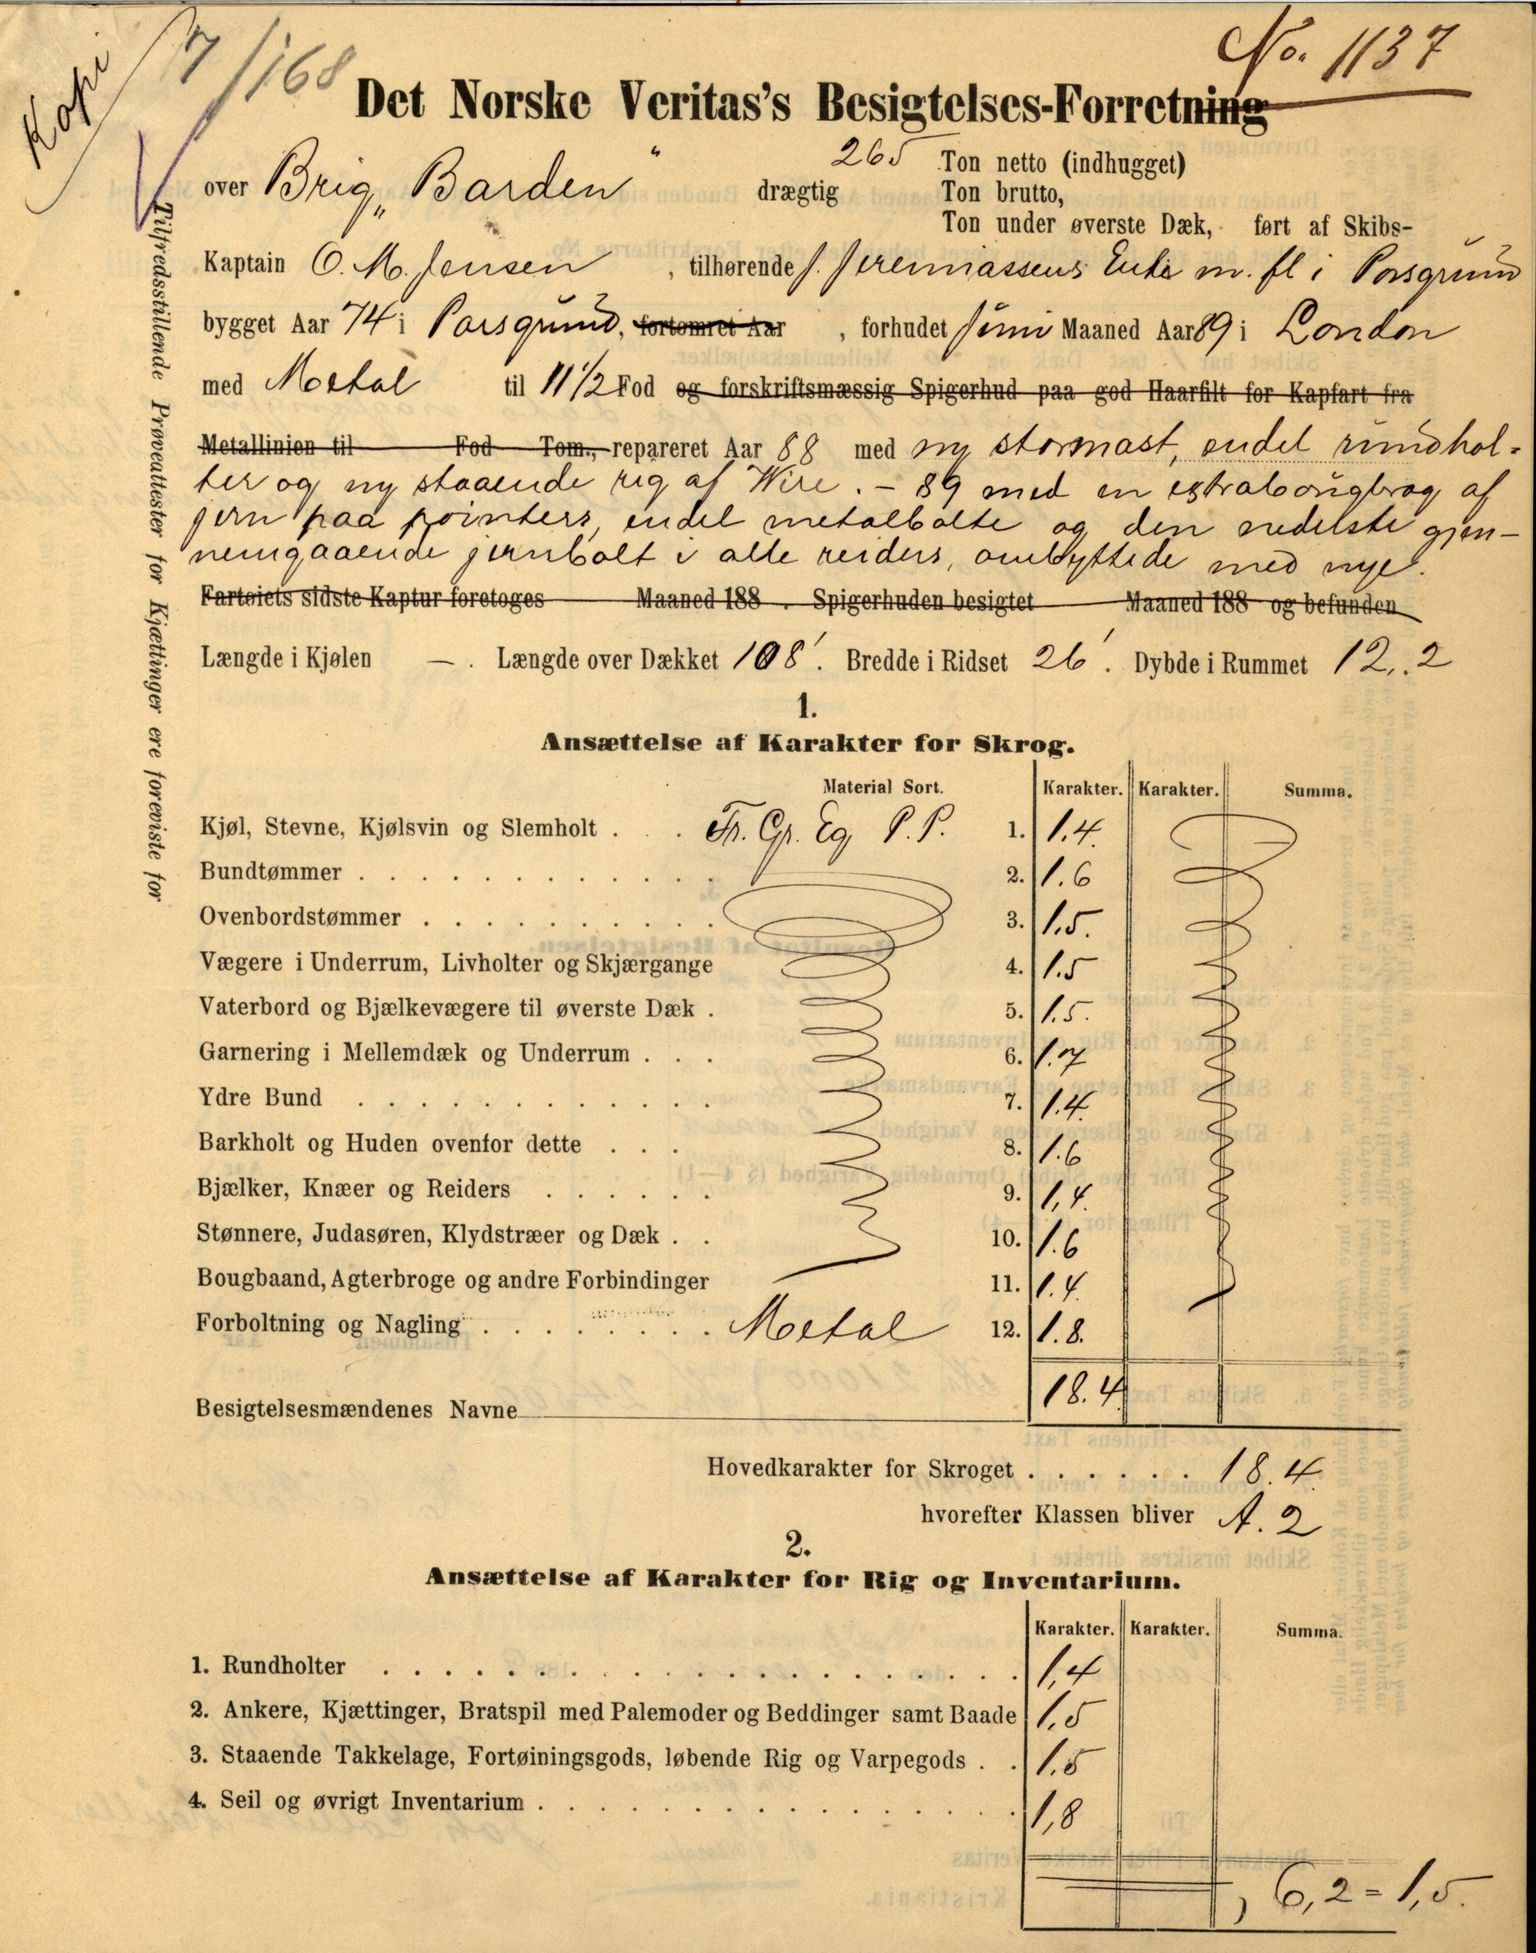 No. 1137
Kopi
7/168
Det Norske Veritas's Besigtelses-Forretning
over Brig „Barden" drægtig 265 Ton netto (indhugget)
Ton brutto,
Ton under øverste Dæk, ført af Skibs-
Kaptain O. M. Jensen, tilhørende J. Jeremiassens Enke m. fl i Porsgrund
bygget Aar 74 i Porsgrund, fortømret Aar , forhudet Juni Maaned Aar 89 i London
med Metal til 11 1/2 Fod og forskriftsmæssig Spigerhud paa god Haarfilt for Kapfart fra
Metallinien til Fod Tom., repareret Aar 88 med ny stormast, endel rundhol-
ter og ny staaende rig af Wire. – 89 med en extrabougbrog af
jern paa pointers, endel metalbolte og den nederste gjen-
nemgaaende jernbolt i alle reiders, ombyttede med nye.
Fartøiets sidste Kaptur foretoges Maaned 188 . Spigerhuden besigtet Maaned 188 og befunden
Længde i Kjølen — . Længde over Dækket 108'. Bredde i Ridset 26'. Dybde i Rummet 12,.2
Tilfredsstillende Prøveattester for Kjættinger ere foreviste for
1.
Ansættelse af Karakter for Skrog.
Material Sort. Karakter. Karakter. Summa.
Kjøl, Stevne, Kjølsvin og Slemholt . . . Fr. Gr. Eg P. P. 1. 1.4.
Bundtømmer . . . . . . . . . . . . 2. 1.6
Ovenbordstømmer . . . . . . . . . . 3. 1.5.
Vægere i Underrum, Livholter og Skjærgange 4. 1.5
Vaterbord og Bjælkevægere til øverste Dæk . 5. 1.5.
Garnering i Mellemdæk og Underrum . . . 6. 1.7
Ydre Bund . . . . . . . . . . . . 7. 1.4.
Barkholt og Huden ovenfor dette . . . 8. 1.6
Bjælker, Knæer og Reiders . . . . . . 9. 1,4.
Stønnere, Judasøren, Klydstræer og Dæk . . 10. 1.6
Bougbaand, Agterbroge og andre Forbindinger 11. 1.4.
Forboltning og Nagling . . . . . . . . Metal 12. 1.8.
Besigtelsesmændenes Navne 18.4
Hovedkarakter for Skroget . . . . . . 18.4.
hvorefter Klassen bliver A. 2
2.
Ansættelse af Karakter for Rig og Inventarium.
Karakter. Karakter. Summa.
1. Rundholter . . . . . . . . . . . . . . . . . . . 1,4
2. Ankere, Kjættinger, Bratspil med Palemoder og Beddinger samt Baade 1,5
3. Staaende Takkelage, Fortøiningsgods, løbende Rig og Varpegods . . 1.5
4. Seil og øvrigt Inventarium . . . . . . . . . . . . . . . . 1,8
6,2 = 1,5.